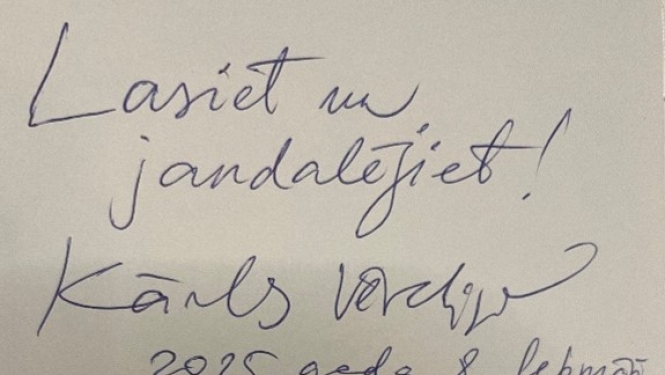 Lasiet un
jandalējiet!
Kārlis Vērdiņš
2025. gada 8. februārī